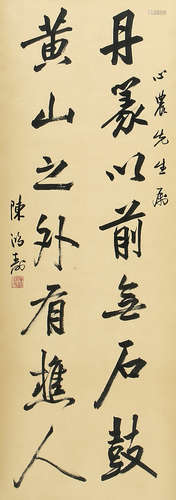 心農先生屬
丹篆以前無石鼓
黄山之外有樵人
陳鴻壽